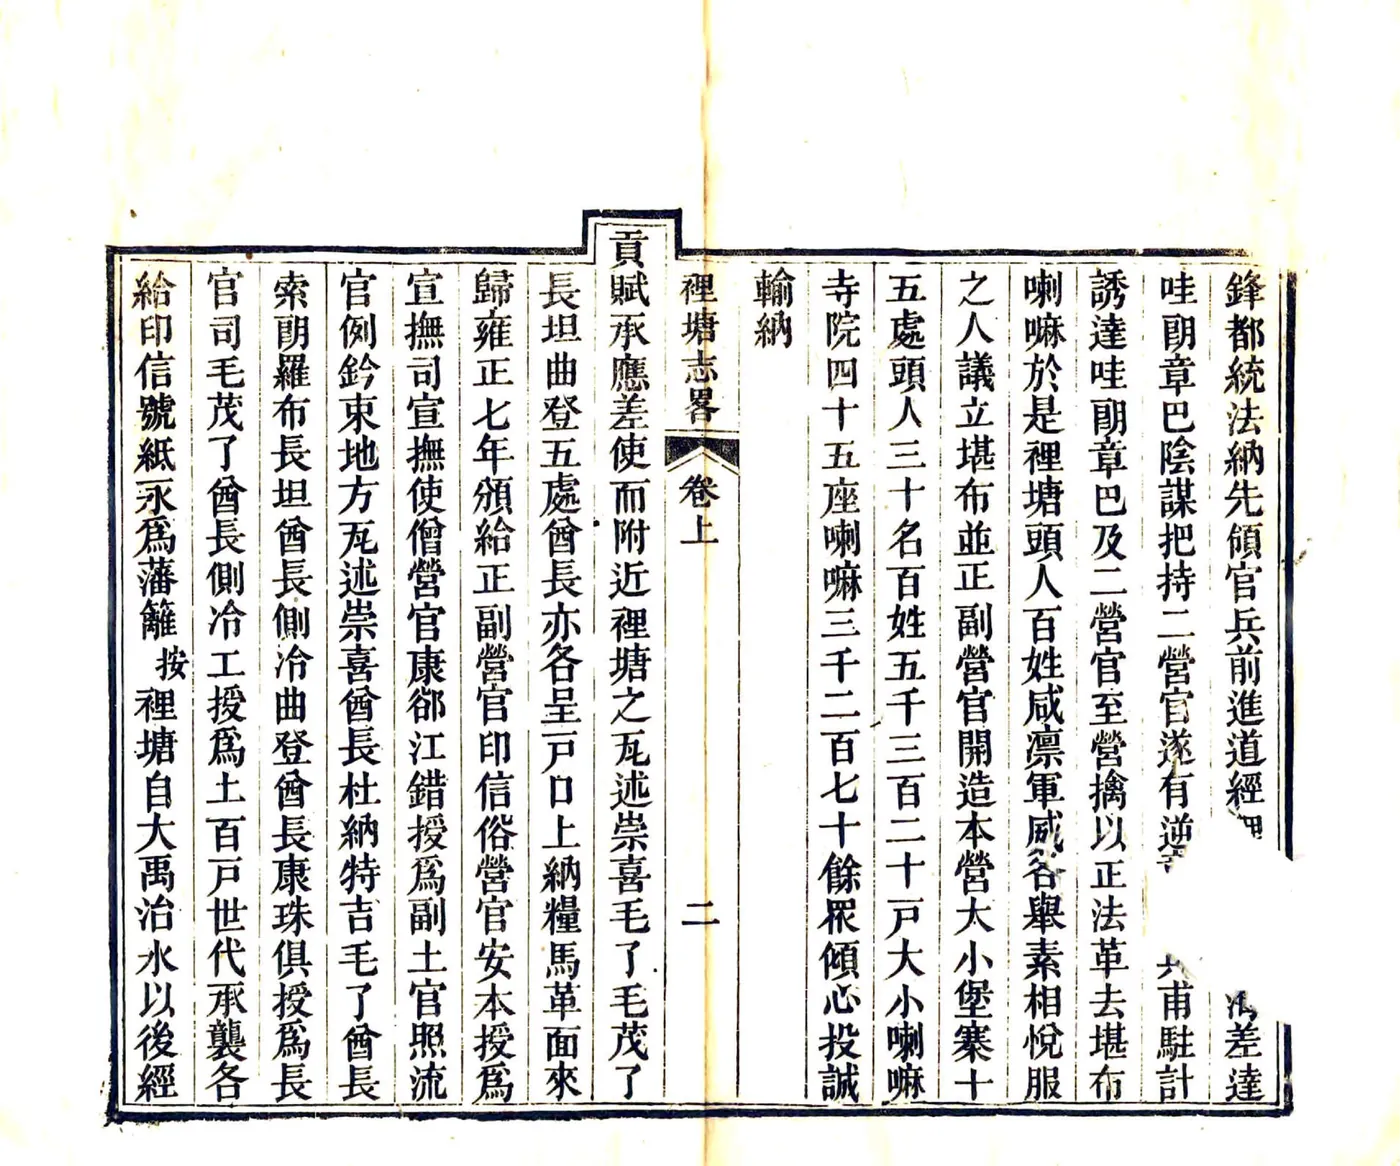 鋒都統法納先領官兵前進道經差達
哇郎章巴陰謀把持二營官遂有逆甫駐計
誘達哇郎章巴及二營官至營擒以正法革去堪布
喇嘛於是裡塘頭人百姓咸凛軍威各舉素相悅服
之人議立堪布並正副營官開造本營大小堡寨十
五處頭人三十名百姓五千三百二十戸大小喇嘛
寺院四十五座喇嘛三千二百七十餘眾傾心投誠
輸納
裡塘志畧
卷上
二
貢賦承應差使而附近裡塘之瓦述崇喜毛了毛茂了
長坦曲登五處酋長亦各呈戸口上納糧馬革面來
歸雍正七年頒給正副營官印信俗營官安本授爲
宣撫司宣撫使僧營官康郤江錯授爲副土官照流
官例鈐束地方瓦述崇喜酋長杜納特吉毛了酋長
索郎羅布長坦酋長側冷曲登酋長康珠俱授爲長
官司毛茂了酋長側冷工授爲土百戸世代承襲各
給印信號紙永爲藩籬按裡塘自大禹治水以後經